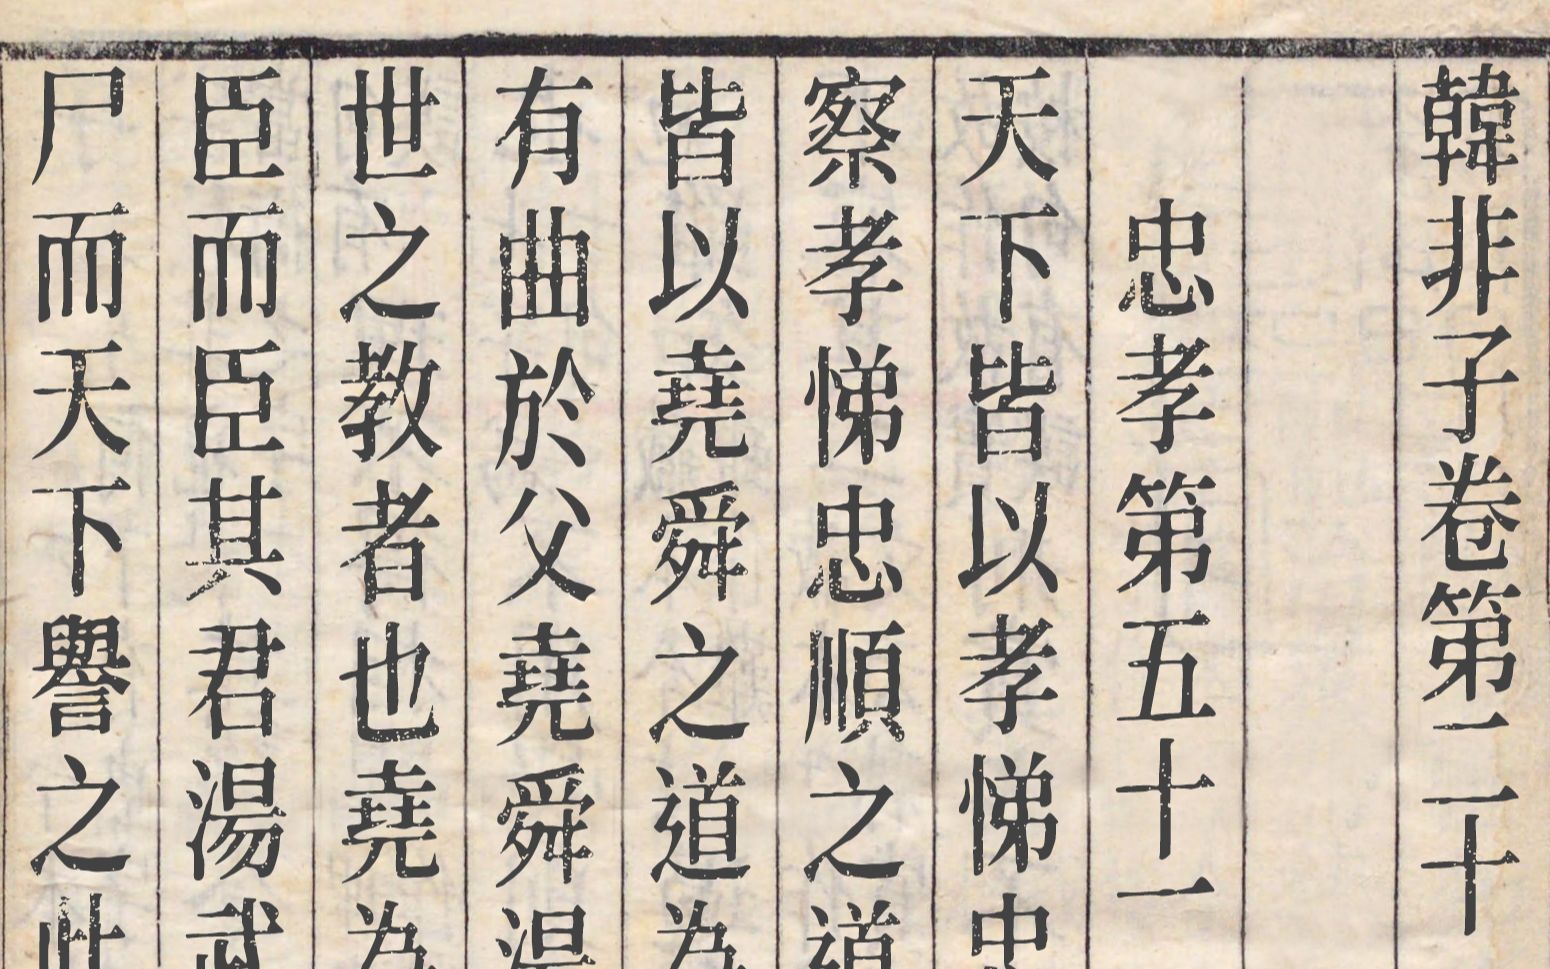 韓非子卷第二十
忠孝第五十一
天下皆以孝悌忠
察孝悌忠順之道
皆以堯舜之道為
有曲於父堯舜湯
世之教者也堯為
臣而臣其君湯武
尸而天下譽之此